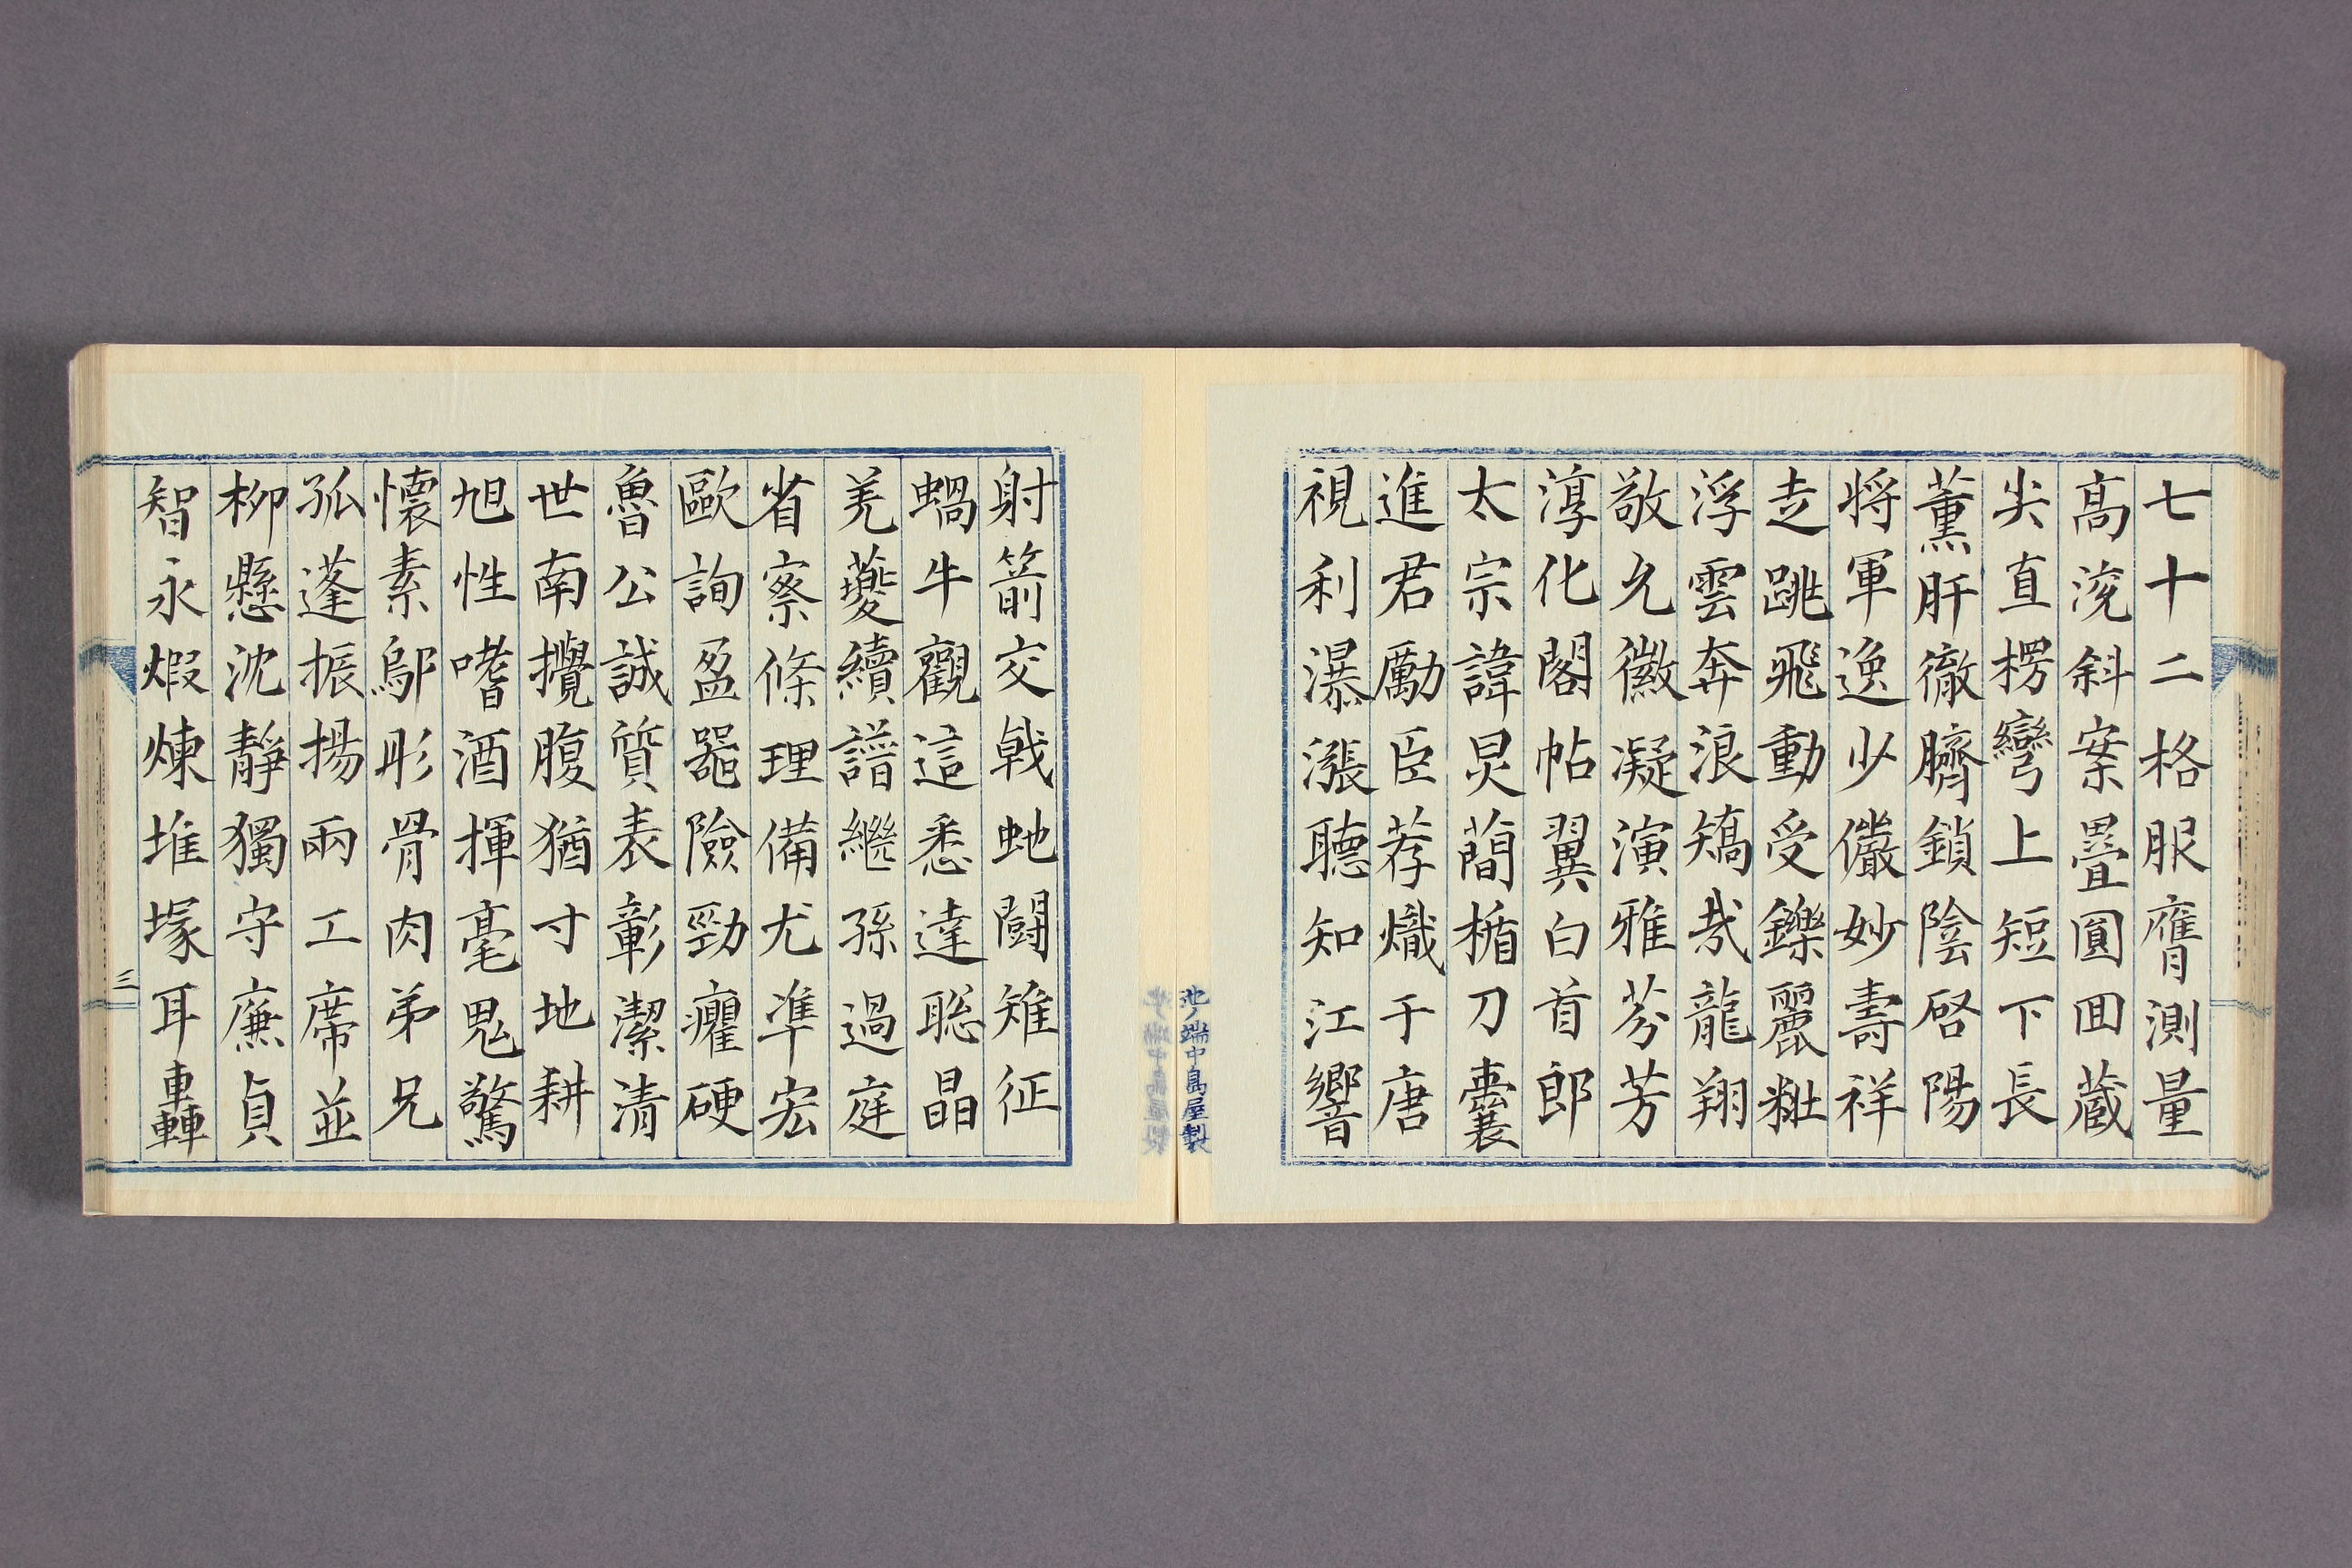 七十二格服膺測量
髙淩斜案疊圓囬蔵
尖直楞彎上短下長
薫肝徹臍鎖陰啓陽
将軍逸少儼妙壽祥
走跳飛動受鑠麗粃
浮雲奔浪矯㢤龍翔
敬允徽凝演雅芬芳
淳化閣帖翼白首郎
太宗諱炅蕳楯刀囊
進君勵臣荐熾于唐
視利瀑漲聽知江響
射箭交戟虵闘雉征
蝸牛觀這悉達聡晶
羌夔續譜繼孫過庭
省察條理備尤準宏
歐詢盈噐險勁癯硬
魯公誠質表彰潔清
世南攪腹猶寸地耕
旭性嗜酒揮毫鬼驚
懐素鄔彤骨肉弟兄
孤蓬振揚兩工席並
柳懸沈靜獨守廉貞
智永煆煉堆塚耳轟
三
池ノ端中島屋製